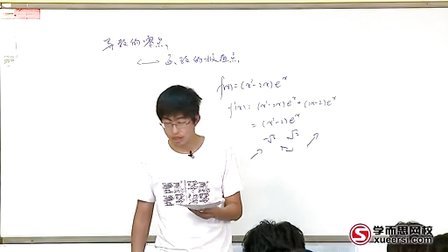 导数的零点
⟷ 函数的极值点
f(x)=(x²-2x)e^x
f'(x)=(x²-2x)e^x+(2x-2)e^x
=(x²-2)e^x
-√2 √2
学而思网校
xueersi.com